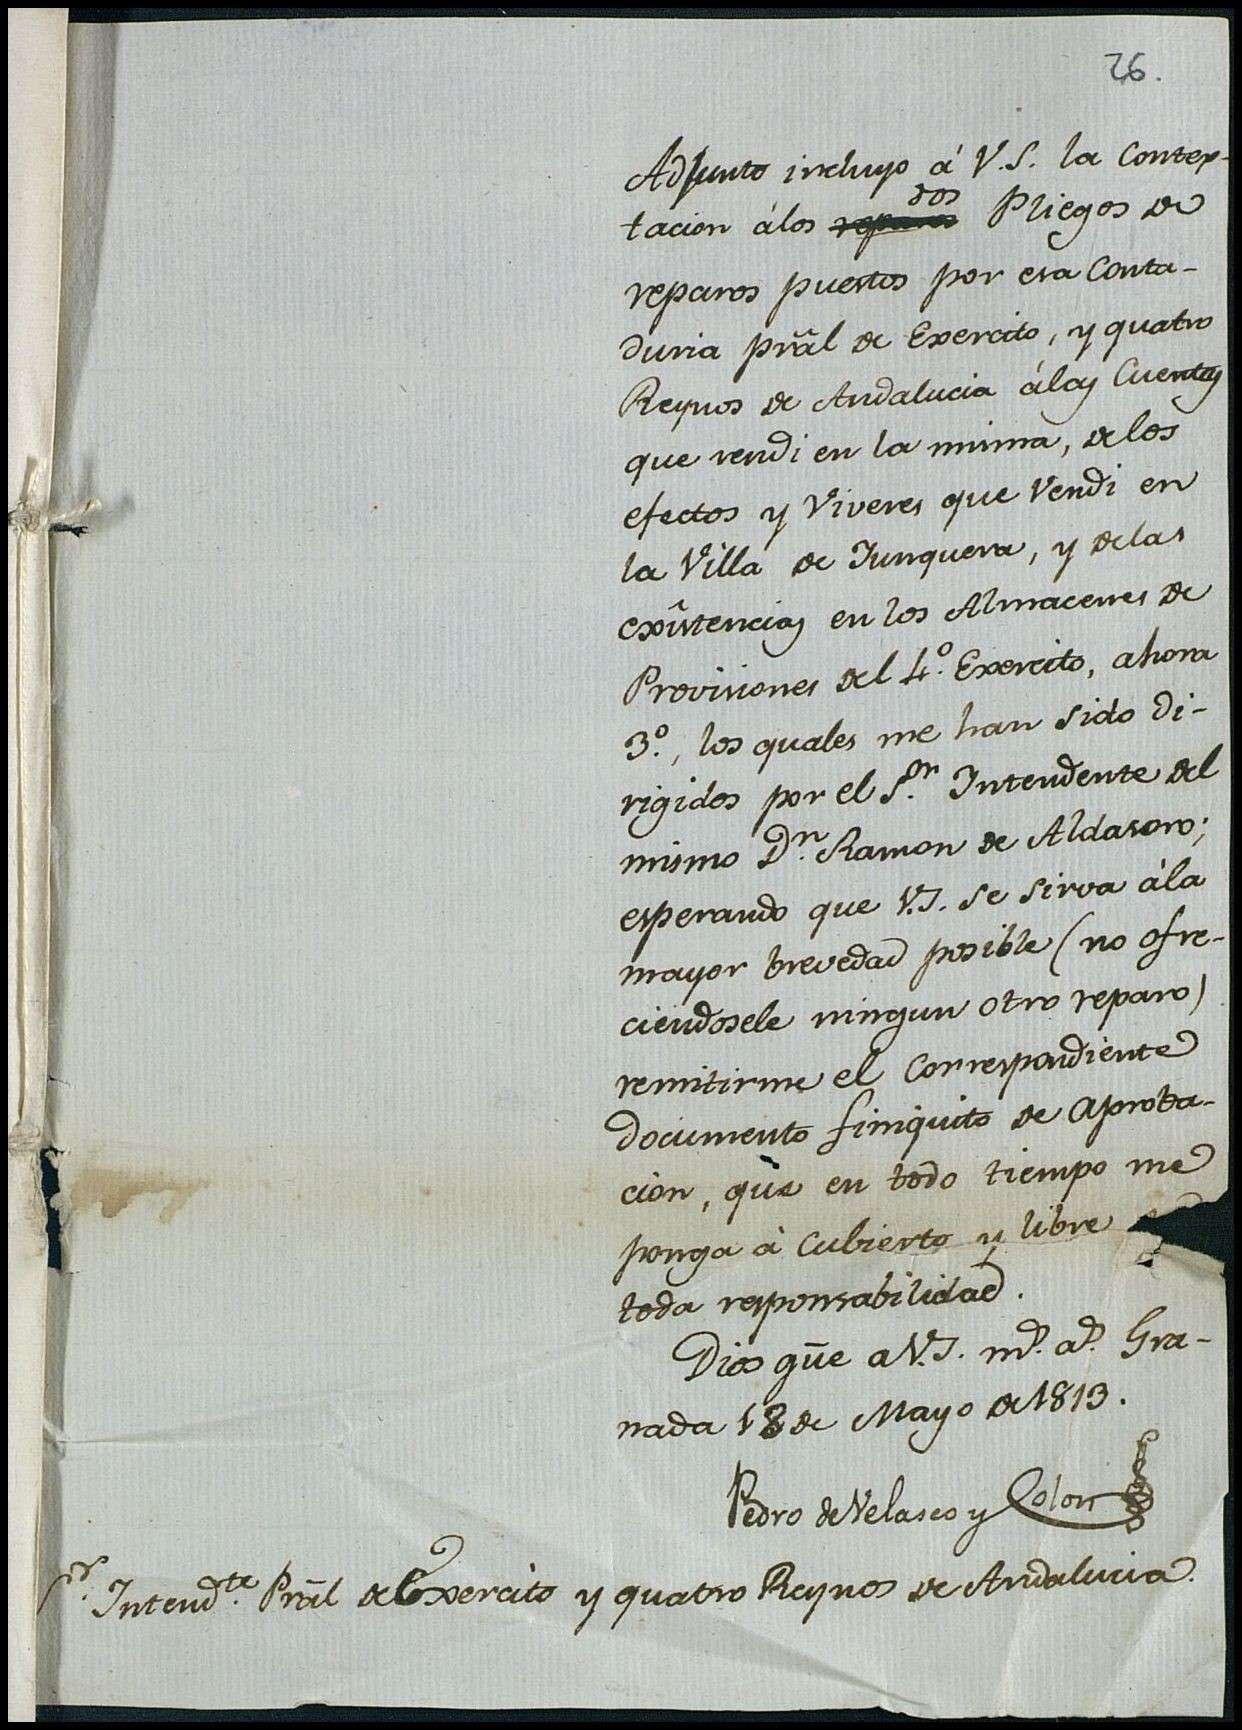 26.
Adjunto incluyo á V.S. la Contex-
tacion álos reparos dos Pliegos de
reparos puestos por esa Conta-
duria prãl de Exercito, y quatro
Reynos de Andalucia álas Cuentas
que rendi en la misma, de los
efectos y Viveres que Vendi en
la Villa de Junquera, y delas
existencias en los Almacenes de
Provisiones del 4.º Exercito, ahora
3.º, los quales me han sido di-
rigidos por el S.ºr Intendente del
mismo D.n Ramon de Aldasoro;
esperando que V.S. se sirva ála
mayor brevedad posible (no ofre-
ciendosele ningun otro reparo)
remitirme el Correspondiente
documento finiquito de aproba-
cion, que en todo tiempo me
ponga á Cubierto y libre
toda responsabilidad.
Dios gũe a V.S. m.s a.s Gra-
nada 18 de Mayo de 1813.
Pedro de Velasco y Colon
S.or Intend.te Prãl de Exercito y quatro Reynos de Andalucia.